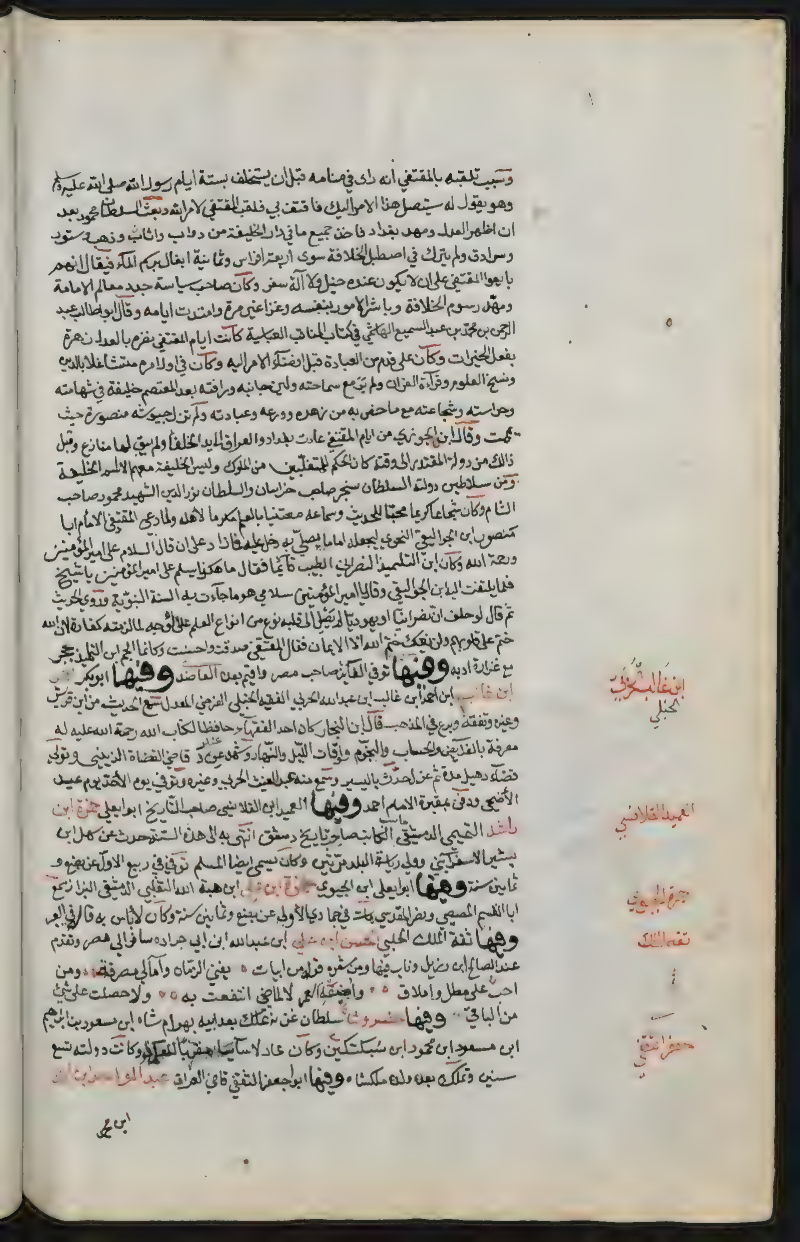 وسبب تلقبه بالمقتفي أنه رأى في منامه قبل ان يستخلف بستة ايام رسول الله صلى الله عليه وسلم
وهو يقول له سيصل هذا الامر اليك فاقتف بي فلقب المقتفي لامر الله وبعث السلطان محمود بعد
ان اظهر العدل ومهد بغداد فاخذ جميع ما في دار الخليفة من دواب واثاث وذهب وستور
وسرادق ولم يترك في اصطبل الخلافة سوى اربعة افراس وثمانية ابغال برسم الماء فيقال انهم
بايعوا المقتفي على ان لا يكون عنده خيل ولا آلة سفر وكان صاحب سياسة جدد معالم الامامة
ومهد رسوم الخلافة وباشر الامور بنفسه وغزا غير مرة وامتدت ايامه وقال ابو طالب عبد
الرحمن بن محمد بن عبد السميع الهاشمي في كتاب المناقب العباسية كانت ايام المقتفي نضرة بالعدل زهرة
بفعل الخيرات وكان على قدم من العبادة قبل افضاء الامر اليه وكان في اول امره متشاغلا بالدين
ونسخ العلوم وقراءة القران ولم ير مع سماحته ولين جانبه ورافته بعد المعتصم خليفة في شهامته
وصرامته وشجاعته مع ما خص به من زهده وورعه وعبادته ولم تزل جيوشه منصورة حيث
يممت وقال ابن الجوزي من ايام المقتفي عادت بغداد والعراق الى يد الخلفا ولم يبق لها منازع وقبل
ذلك من دولة المقتدر الى وقته كان الحكم للمتغلبين من الملوك وليس للخليفة معهم الا اسم الخليفة
ومن سلاطين دولته السلطان سنجر صاحب خراسان والسلطان نور الدين الشهيد محمود صاحب
الشام وكان شجاعا كريما محبا للحديث وسماعه معتنيا بالعلم مكرما لاهله ولما دعي المقتفي الامام ابا
منصور ابن الجواليقي النحوي ليجعله اماما يصلي به دخل عليه فما زاد على ان قال السلام على امير المؤمنين
ورحمة الله وكان ابن التلميذ النصراني الطبيب قائما فقال ما هكذا يسلم على امير المؤمنين يا شيخ
فلم يلتفت اليه ابن الجواليقي وقال يا امير المؤمنين سلامي هو ما جاءت به السنة النبوية وروى الحديث
ثم قال لو حلف ان نصرانيا او يهوديا لم يصل الى قلبه نوع من انواع العلم على الوجه لما لزمته كفارة لان الله
ختم على قلوبهم ولن يفك ختم الله الا الايمان فقال المقتفي صدقت واحسنت وكانما الجم ابن التلميذ بحجر
مع غزارة ادبه وفيها توفي الفائز صاحب مصر واقيم بعده العاضد وفيها ابو بكر
ابن غالب ابن احمد ابن غالب ابن عبد الله الحربي الفقيه الحنبلي الفرضي المعدل سمع الحديث من ابن قريش
وغيره وتفقه وبرع في المذهب قال ابن النجار كان احد الفقهاء حافظا لكتاب الله رحمة الله عليه له
معرفة بالفرايض والحساب والنجوم واوقات الليل والنهار وشهد عند قاضي القضاة الزينبي وتولى
قضاء دجيل مدة ثم عزل حدث باليسير وسمع منه عبد المغيث الحربي وغيره وتوفي يوم الاحد يوم عيد
الاضحى ودفن بمقبرة الامام احمد وفيها العميد ابن القلانسي صاحب التاريخ ابو يعلى حمزة ابن
راشد التميمي الدمشقي الكاتب صاحب تاريخ دمشق انتهى به الى هذه السنة حدث عن سهل ابن
بشير الاسفرايني وولي رياسة البلد مرتين وكان يسمى ايضا المسلم توفي في ربيع الاول عن بضع و
ثمانين سنة وفيها ابو يعلى ابن الحبوبي حمزة ابن علي ابن هبة الله الثعلبي الدمشقي البزاز سمع
ابا القاسم المصيصي ونصر المقدسي مات في جمادي الاولى عن بضع وثمانين سنة وكان لا باس به قاله في العبر
وفيها ثقة الملك الحلبي حسن ابن علي ابن عبد الله ابن ابي جرادة سافر الى مصر وتقدم
عند الصالح ابن رزيك وناب فيها ومن شعره قوله من ابيات يفني الزمان وآمالي مصرفة ومن
احب على مطل واملاق واضيعة العمر لا الماضي انتفعت به ولا حصلت على شئ
من الباقي وفيها خسروشاه سلطان غزنة تملك بعد ابيه بهرام شاه ابن مسعود بن ابراهيم
ابن مسعود ابن محمود ابن سبكتكين وكان عادلا سايسا مقربا للعلماء وكانت دولته تسع
سنين وتملك بعده ولده ملكشاه وفيها ابو جعفر الثقفي قاضي العراق عبد الواحد ابن احمد
ابن محمد
ابن غالب الحربي
الحنبلي
العميد القلانسي
حمزة الحبوبي
ثقة الملك
جعفر الثقفي